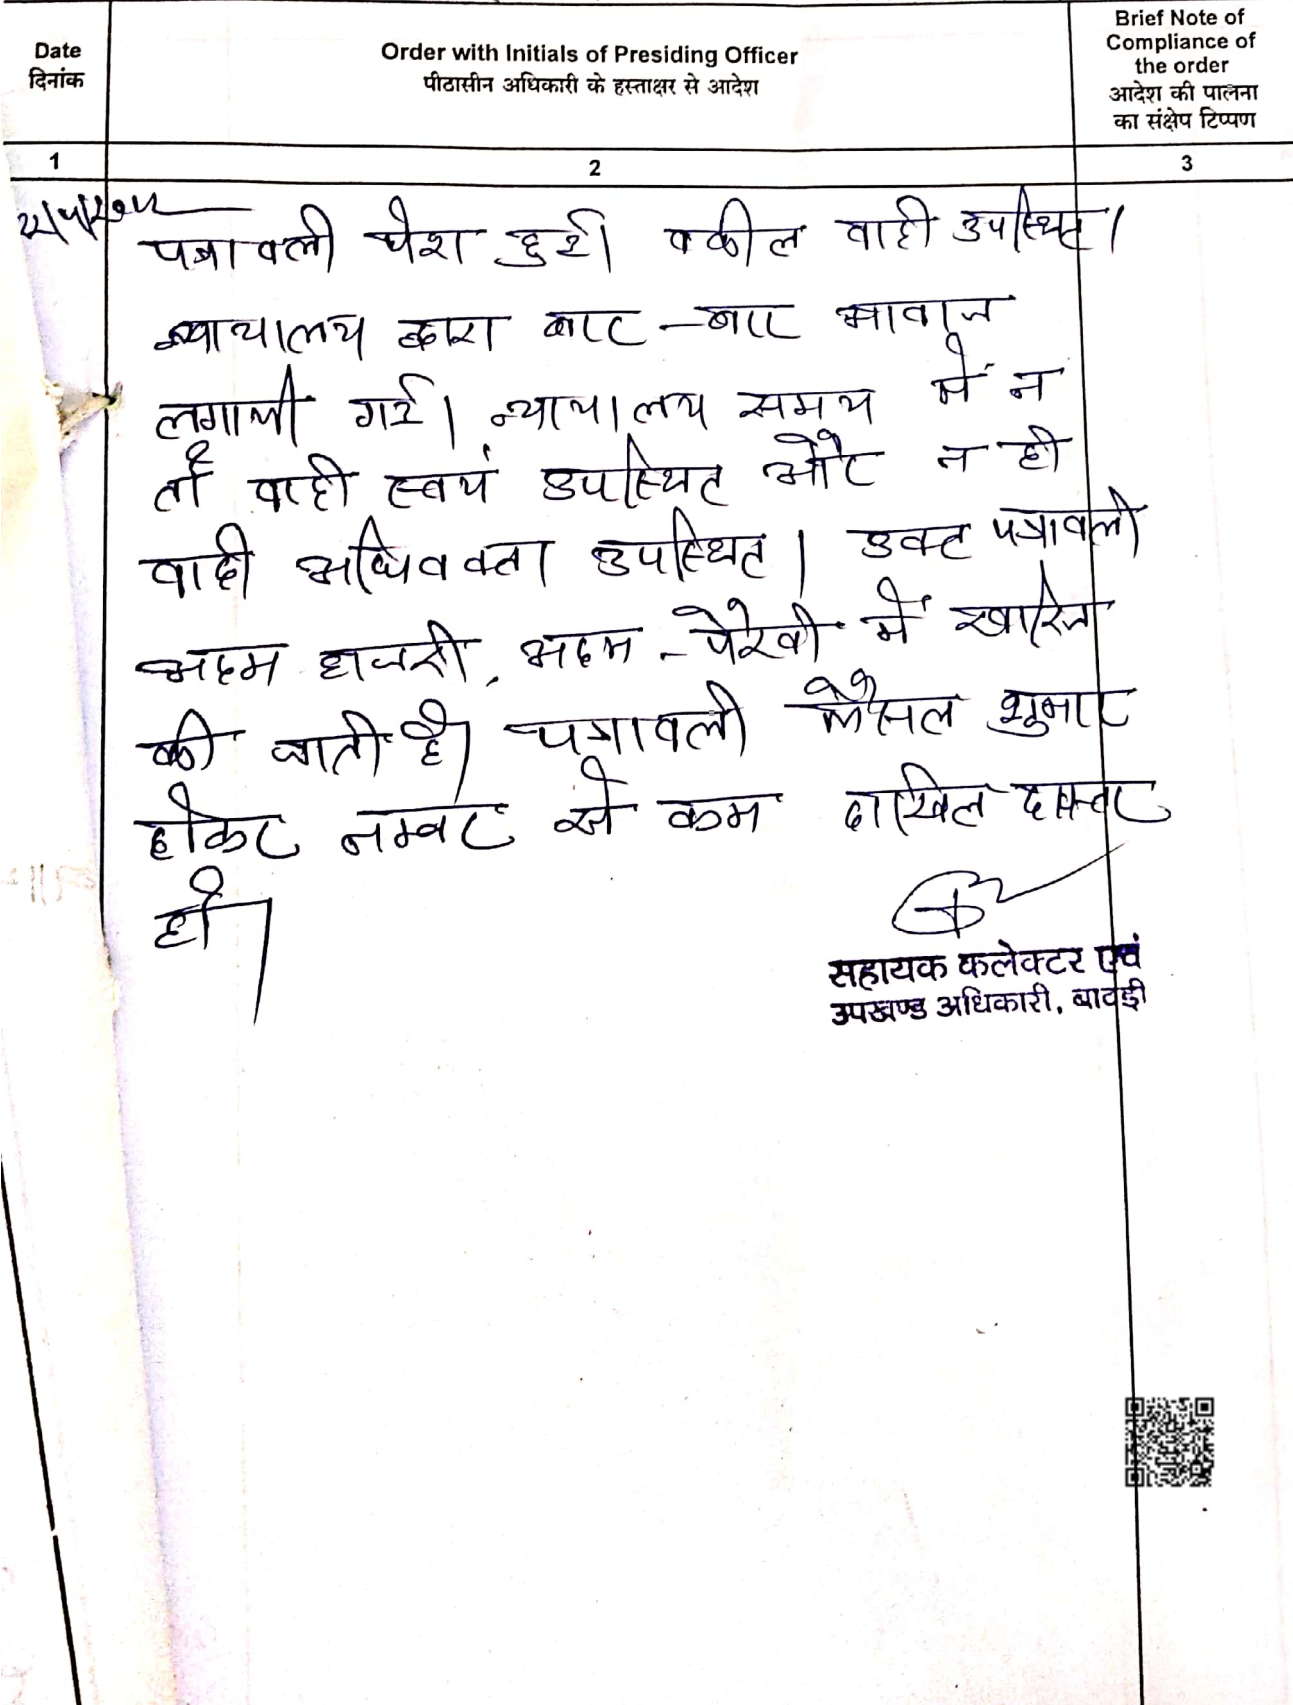 Date
दिनांक
Order with Initials of Presiding Officer
पीठासीन अधिकारी के हस्ताक्षर से आदेश
Brief Note of
Compliance of
the order
आदेश की पालना
का संक्षेप टिप्पण
1
2
3
पत्रावली पेश हुई। वकील वादी उपस्थित।
न्यायालय द्वारा बार-बार आवाज
लगायी गई। न्यायालय समय में न
तो वादी स्वयं उपस्थित और न ही
वादी अधिवक्ता उपस्थित। उक्त पत्रावली
अदम हाजरी, अदम-पैरवी में खारिज
की जाती है। पत्रावली फैसल शुमार
होकर नम्बर से कम दाखिल दफ्तर
हो।
सहायक कलेक्टर एवं
उपखण्ड अधिकारी, बावड़ी